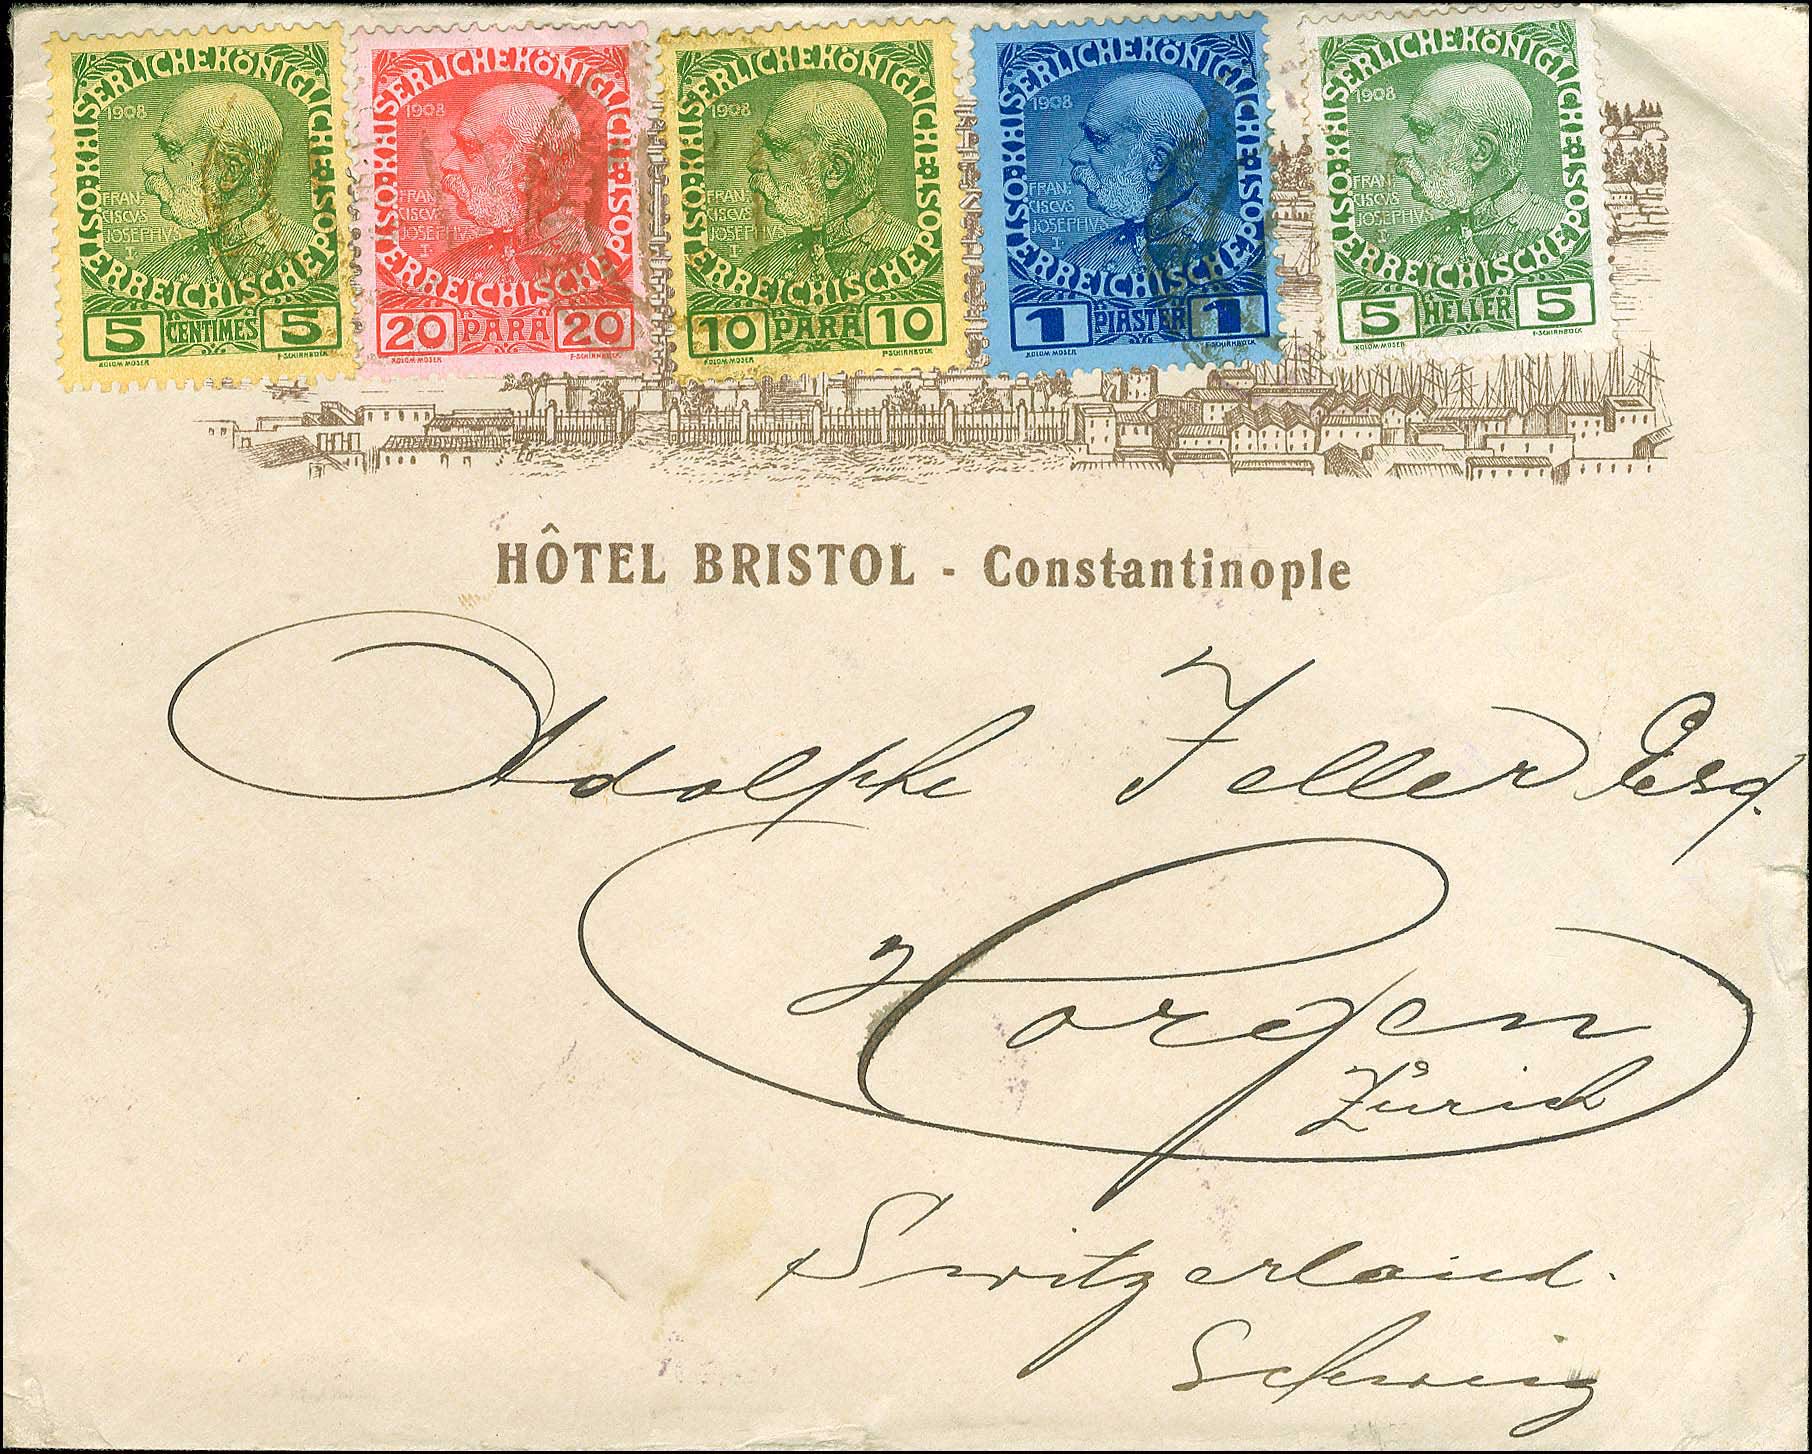 KAISERLICHE KÖNIGLICHE ÖSTERREICHISCHE POST
1908
FRAN-
CISCVS
JOSEPHVS
I
5 CENTIMES 5
KOLOM. MOSER F. SCHIRNBÖCK
KAISERLICHE KÖNIGLICHE ÖSTERREICHISCHE POST
1908
FRAN-
CISCVS
JOSEPHVS
I
20 PARA 20
KOLOM. MOSER F. SCHIRNBÖCK
KAISERLICHE KÖNIGLICHE ÖSTERREICHISCHE POST
1908
FRAN-
CISCVS
JOSEPHVS
I
10 PARA 10
KOLOM. MOSER F. SCHIRNBÖCK
KAISERLICHE KÖNIGLICHE ÖSTERREICHISCHE POST
1908
FRAN-
CISCVS
JOSEPHVS
I
1 PIASTER 1
KOLOM. MOSER F. SCHIRNBÖCK
KAISERLICHE KÖNIGLICHE ÖSTERREICHISCHE POST
1908
FRAN-
CISCVS
JOSEPHVS
I
5 HELLER 5
KOLOM. MOSER F. SCHIRNBÖCK
HÔTEL BRISTOL - Constantinople
Adolphe Feller Esq.
Horgen
Zürich
Switzerland.
Schweiz